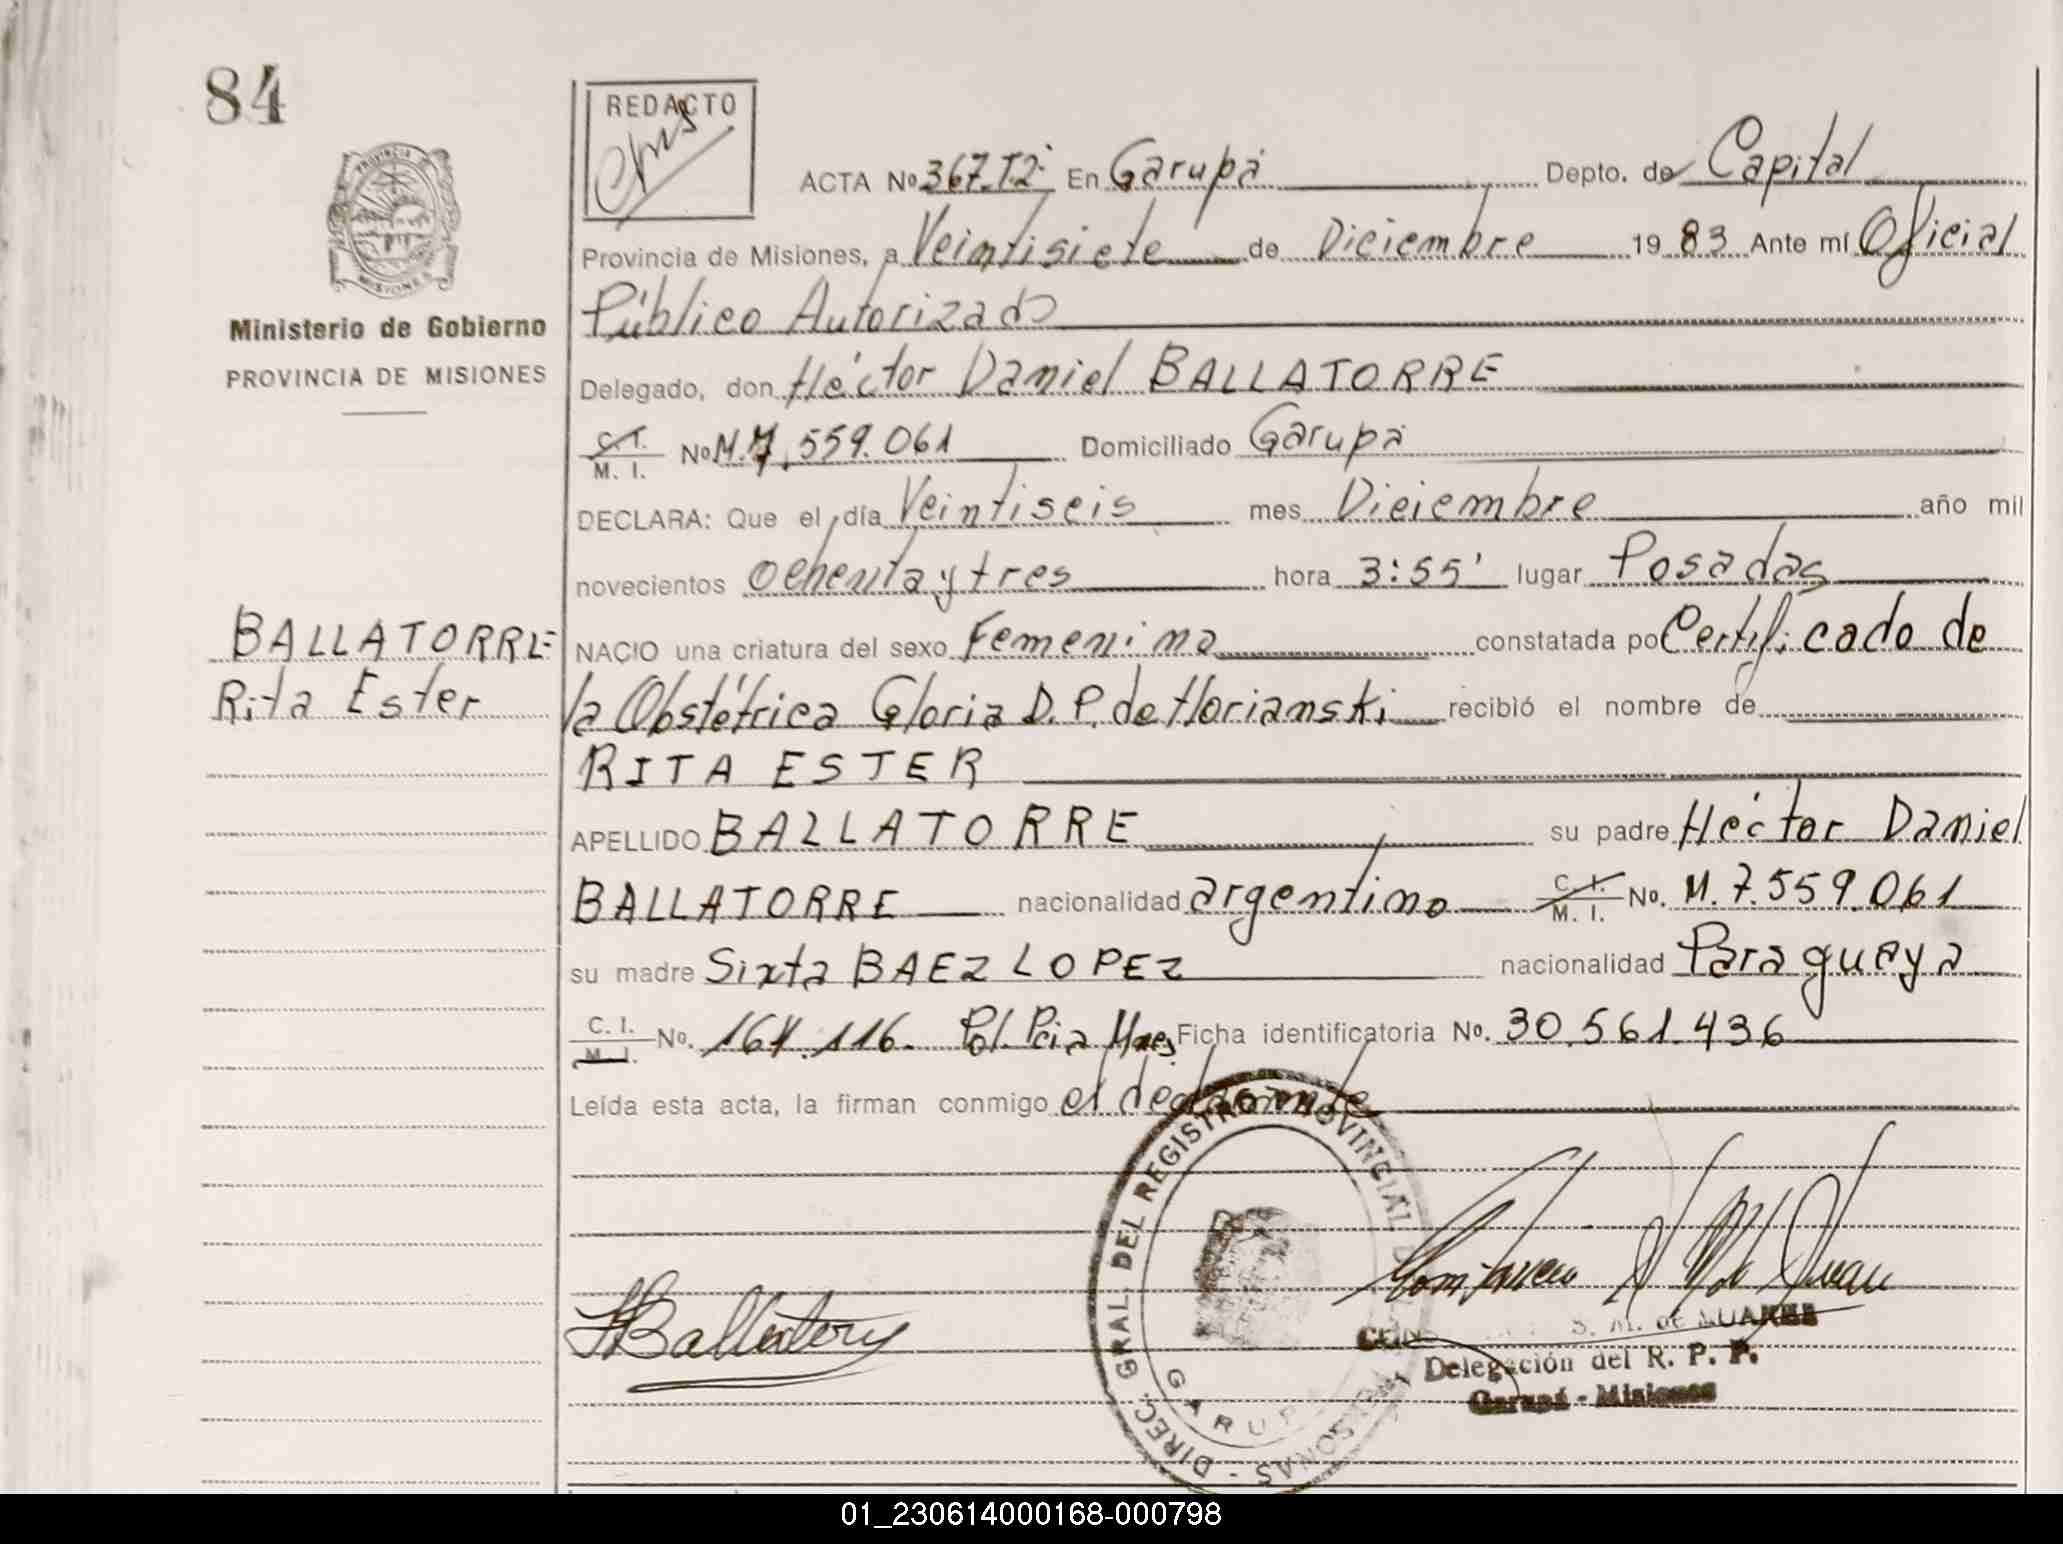 84
REDACTO
PROVINCIA DE MISIONES
Ministerio de Gobierno
PROVINCIA DE MISIONES
ACTA Nº 367.T2º En Garupá Depto. de Capital
Provincia de Misiones, a Veintisiete de Diciembre 1983 Ante mí Oficial
Público Autorizado
Delegado, don Héctor Daniel BALLATORRE
C. I. / M. I. Nº M.7.559.061 Domiciliado Garupá
DECLARA: Que el día Veintiseis mes Diciembre año mil
novecientos ochenta y tres hora 3:55' lugar Posadas
BALLATORRE
Rita Ester
NACIO una criatura del sexo Femenino constatada po Certificado de
la Obstétrica Gloria D. P. de Horianski recibió el nombre de
RITA ESTER
APELLIDO BALLATORRE su padre Héctor Daniel
BALLATORRE nacionalidad argentino C. I. / M. I. No. M.7.559.061
su madre Sixta BAEZ LOPEZ nacionalidad Paraguaya
C. I. / M. I. No. 161.116. Pol. Pcia Mnes Ficha identificatoria No. 30.561.436
Leída esta acta, la firman conmigo el declarante
DIREC. GRAL. DEL REGISTRO PROVINCIAL DE LAS PERSONAS - GARUPA
HBallatorre
S. M. de SUAREZ
Delegación del R. P. P.
Garupá - Misiones
01_230614000168-000798